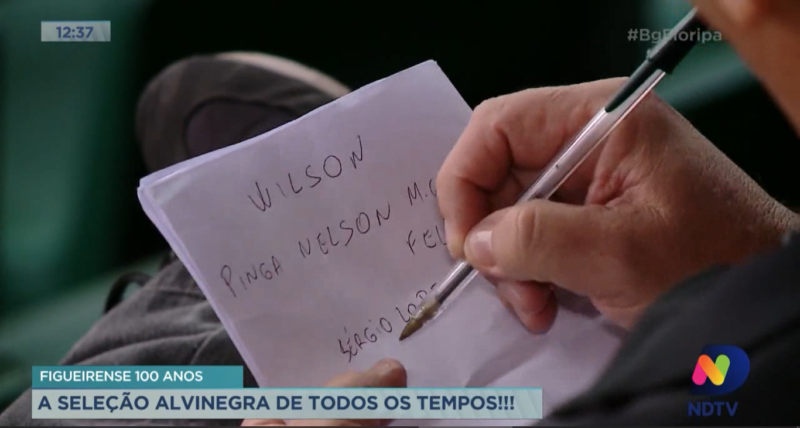 12:37
#BgFloripa
WILSON
PINGA NELSON M.
FEL
SÉRGIO LOP
FIGUEIRENSE 100 ANOS
A SELEÇÃO ALVINEGRA DE TODOS OS TEMPOS!!!
NDTV